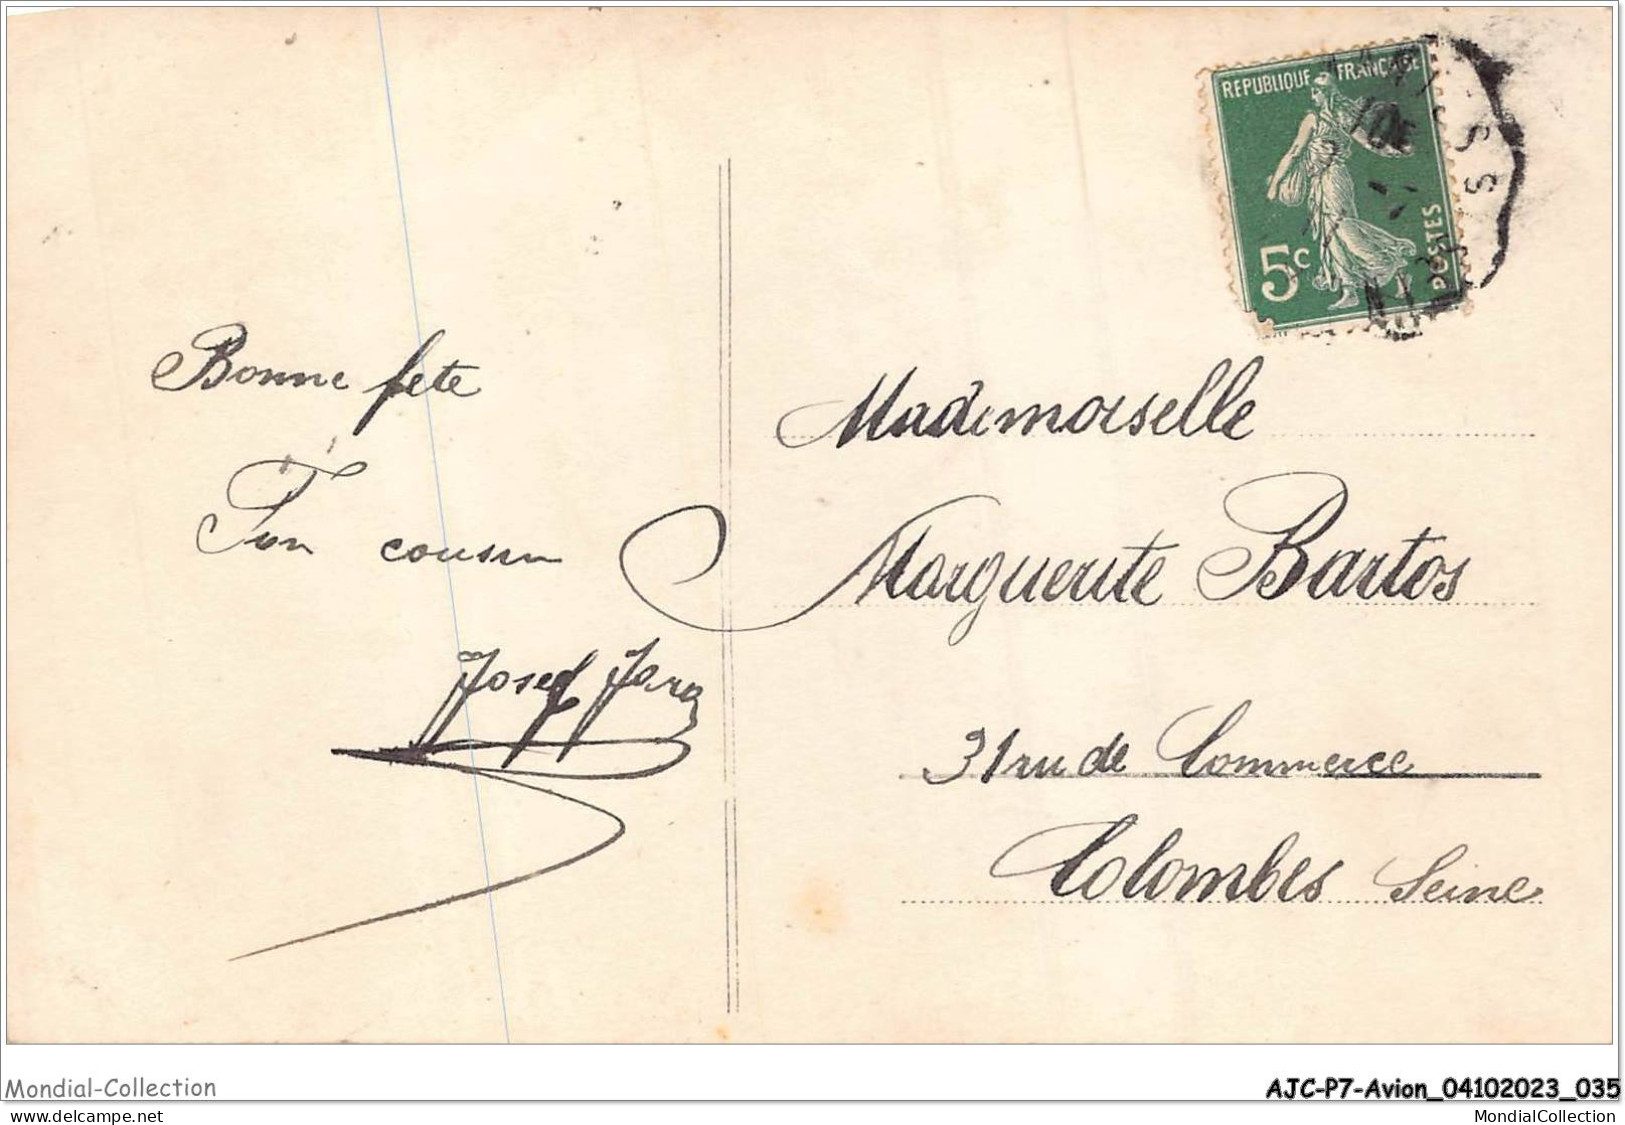 REPUBLIQUE FRANÇAISE
5c
POSTES
Bonne fete
Ton cousin
Josef
Mademoiselle
Marguerite Bartos
31 ru de Commerce
Colombes Seine
Mondial-Collection
AJC-P7-Avion_04102023_035
www.delcampe.net
MondialCollection